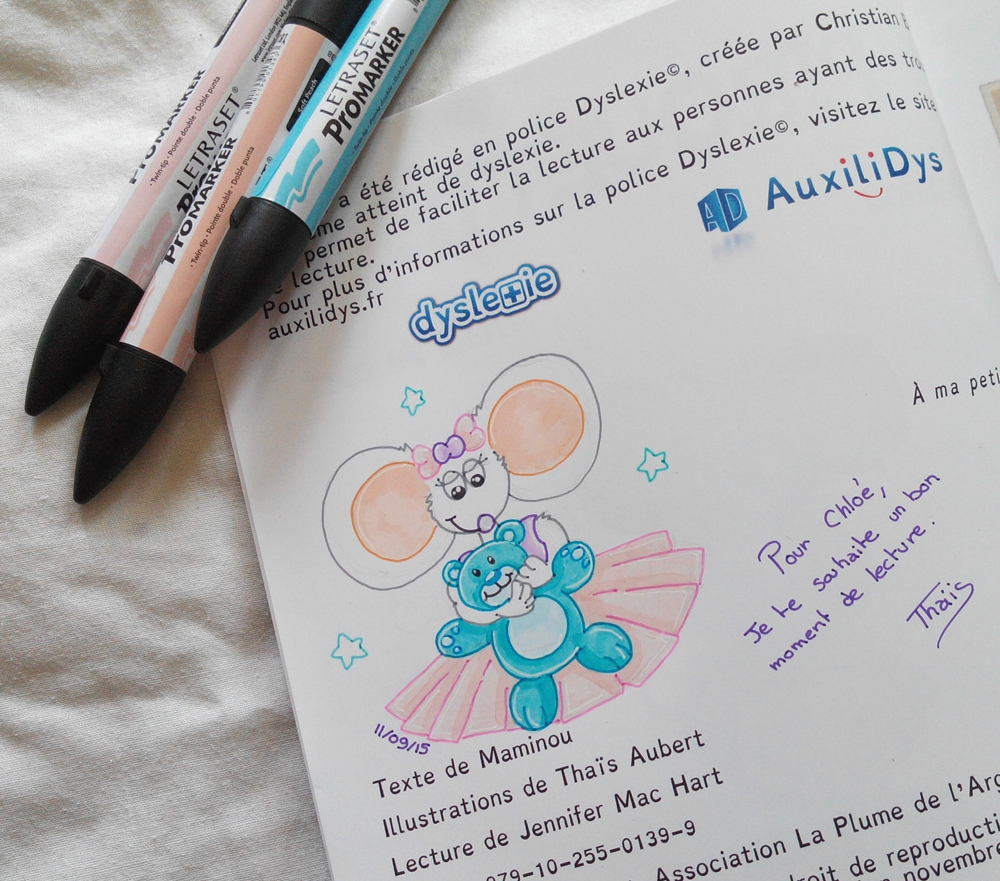 PROMARKER
• Twin-tip • Pointe double • Doble punta
LETRASET®
PROMARKER
• Twin-tip • Pointe double • Doble punta
Soft Peach
LETRASET®
PROMARKER
a été rédigé en police Dyslexie©, créée par Christian
atteint de dyslexie.
permet de faciliter la lecture aux personnes ayant des
lecture.
Pour plus d'informations sur la police Dyslexie©, visitez le site
auxilidys.fr
AD AuxiliDys
dyslexie
À ma
Pour Chloé,
Je te souhaite un bon
moment de lecture.
Thaïs
11/09/15
Texte de Maminou
Illustrations de Thaïs Aubert
Lecture de Jennifer Mac Hart
979-10-255-0139-9
Association La Plume de
droit de